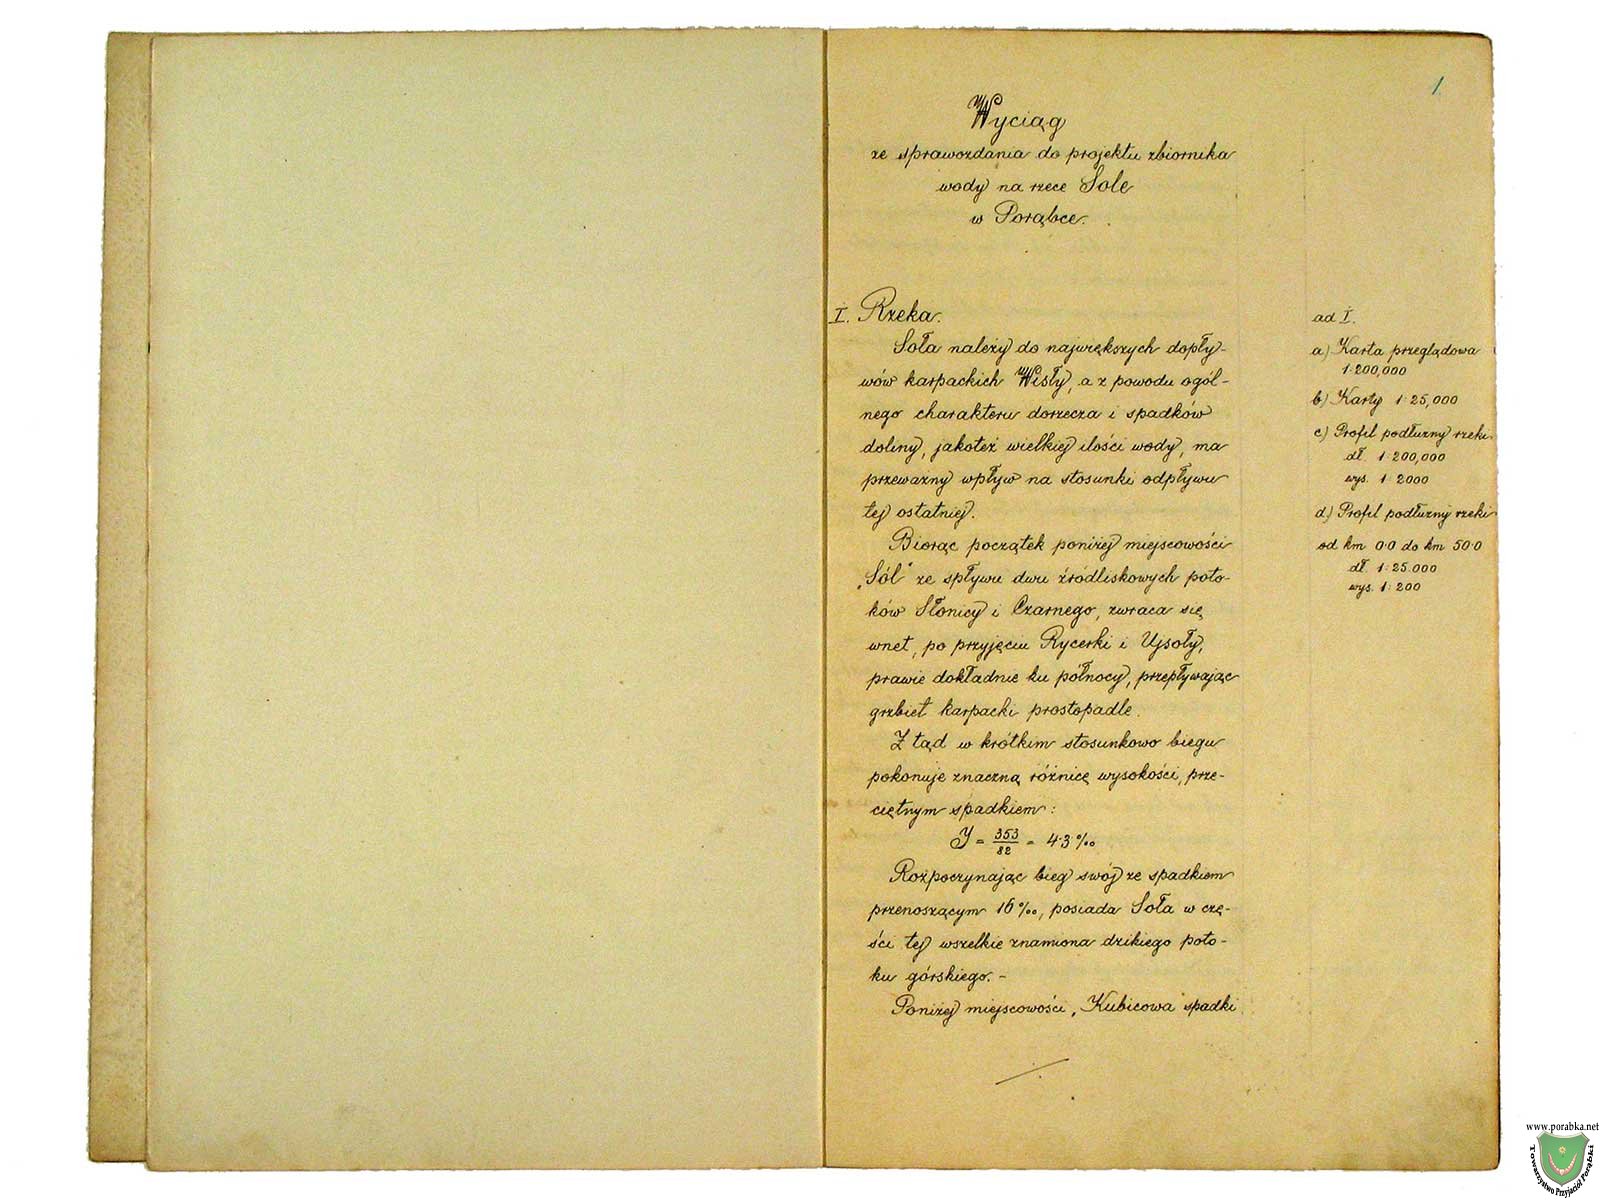 1
Wyciąg
ze sprawozdania do projektu zbiornika
wody na rzece Sole
w Porąbce.
I. Rzeka.
Soła należy do największych dopły-
wów karpackich Wisły, a z powodu ogól-
nego charakteru dorzecza i spadków
doliny, jakoteż wielkiej ilości wody, ma
przeważny wpływ na stosunki odpływu
tej ostatniej.
Biorąc początek poniżej miejscowości
„Sól" ze spływu dwu źródliskowych poto-
ków Słonicy i Czarnego, zwraca się
wnet, po przyjęciu Rycerki i Ujsoły,
prawie dokładnie ku północy, przepływając
grzbiet karpacki prostopadle.
Z tąd w krótkim stosunkowo biegu
pokonuje znaczną różnicę wysokości, prze-
ciętnym spadkiem:
J = 353/82 = 4·3 ‰
Rozpoczynając bieg swój ze spadkiem
przenoszącym 16 ‰, posiada Soła w czę-
ści tej wszelkie znamiona dzikiego poto-
ku górskiego. -
Poniżej miejscowości „Kubicowa spadki
ad I.
a) Karta przeglądowa
1:200,000
b) Karty 1:25,000
c) Profil podłużny rzeki
dł. 1:200,000
wys. 1:2000
d) Profil podłużny rzeki
od km 0·0 do km 50·0
dł. 1:25.000
wys. 1:200
www.porabka.net
Towarzystwo Przyjaciół Porąbki